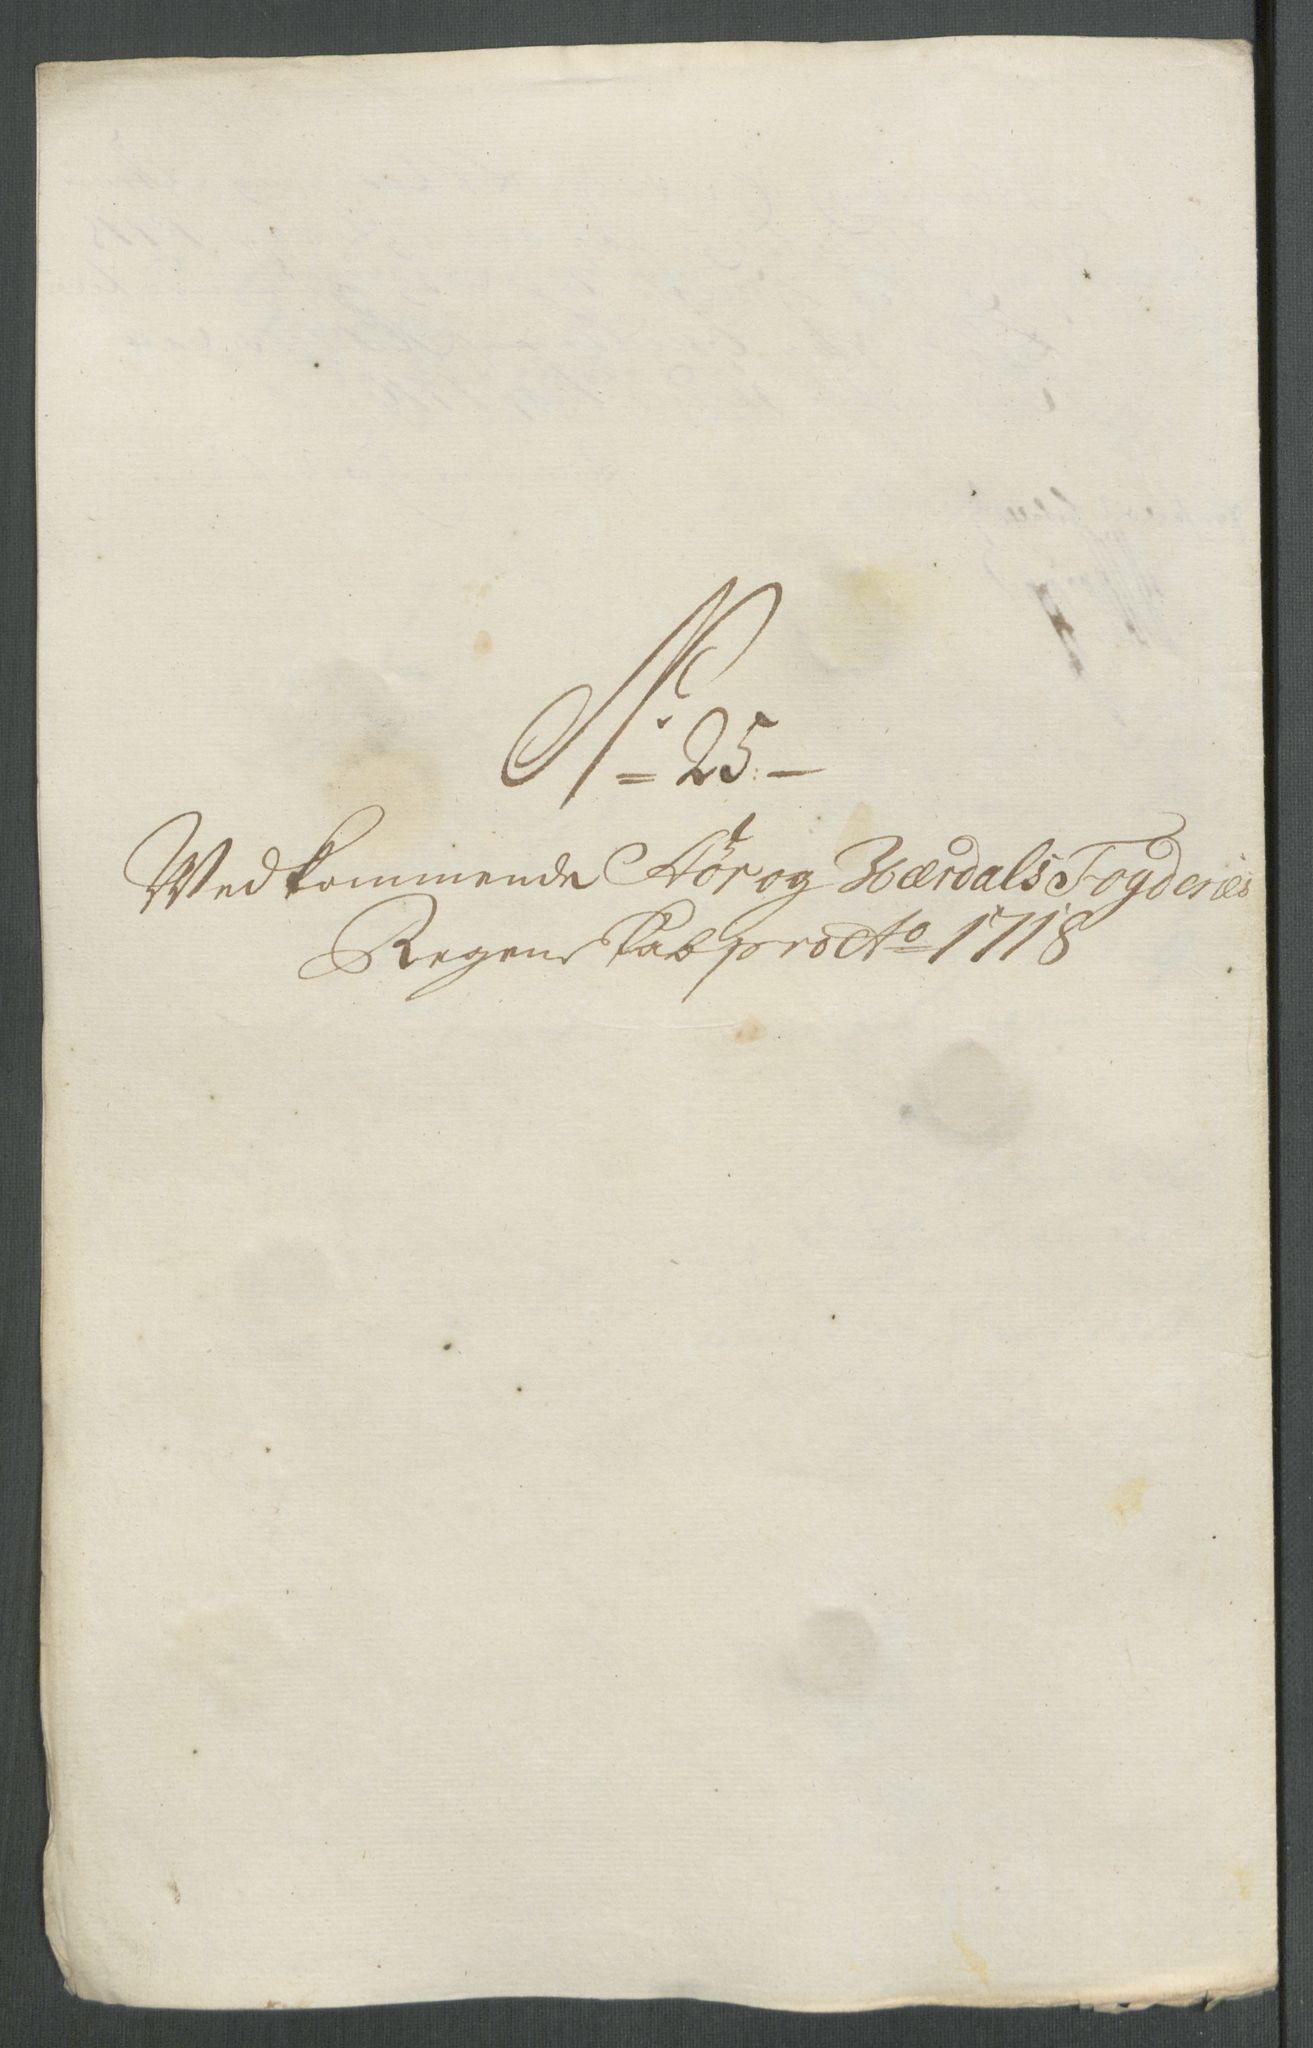 No 25
Wedkommende Stør og Værdals Fogderies
Regenskab pro Ao 1718